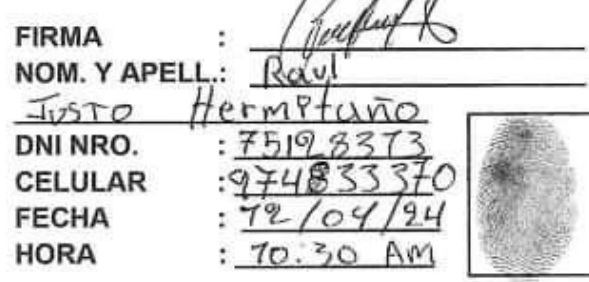 FIRMA :
NOM. Y APELL.: Raul
Justo Hermitaño
DNI NRO. : 75198373
CELULAR : 974833370
FECHA : 12/04/24
HORA : 10:30 AM